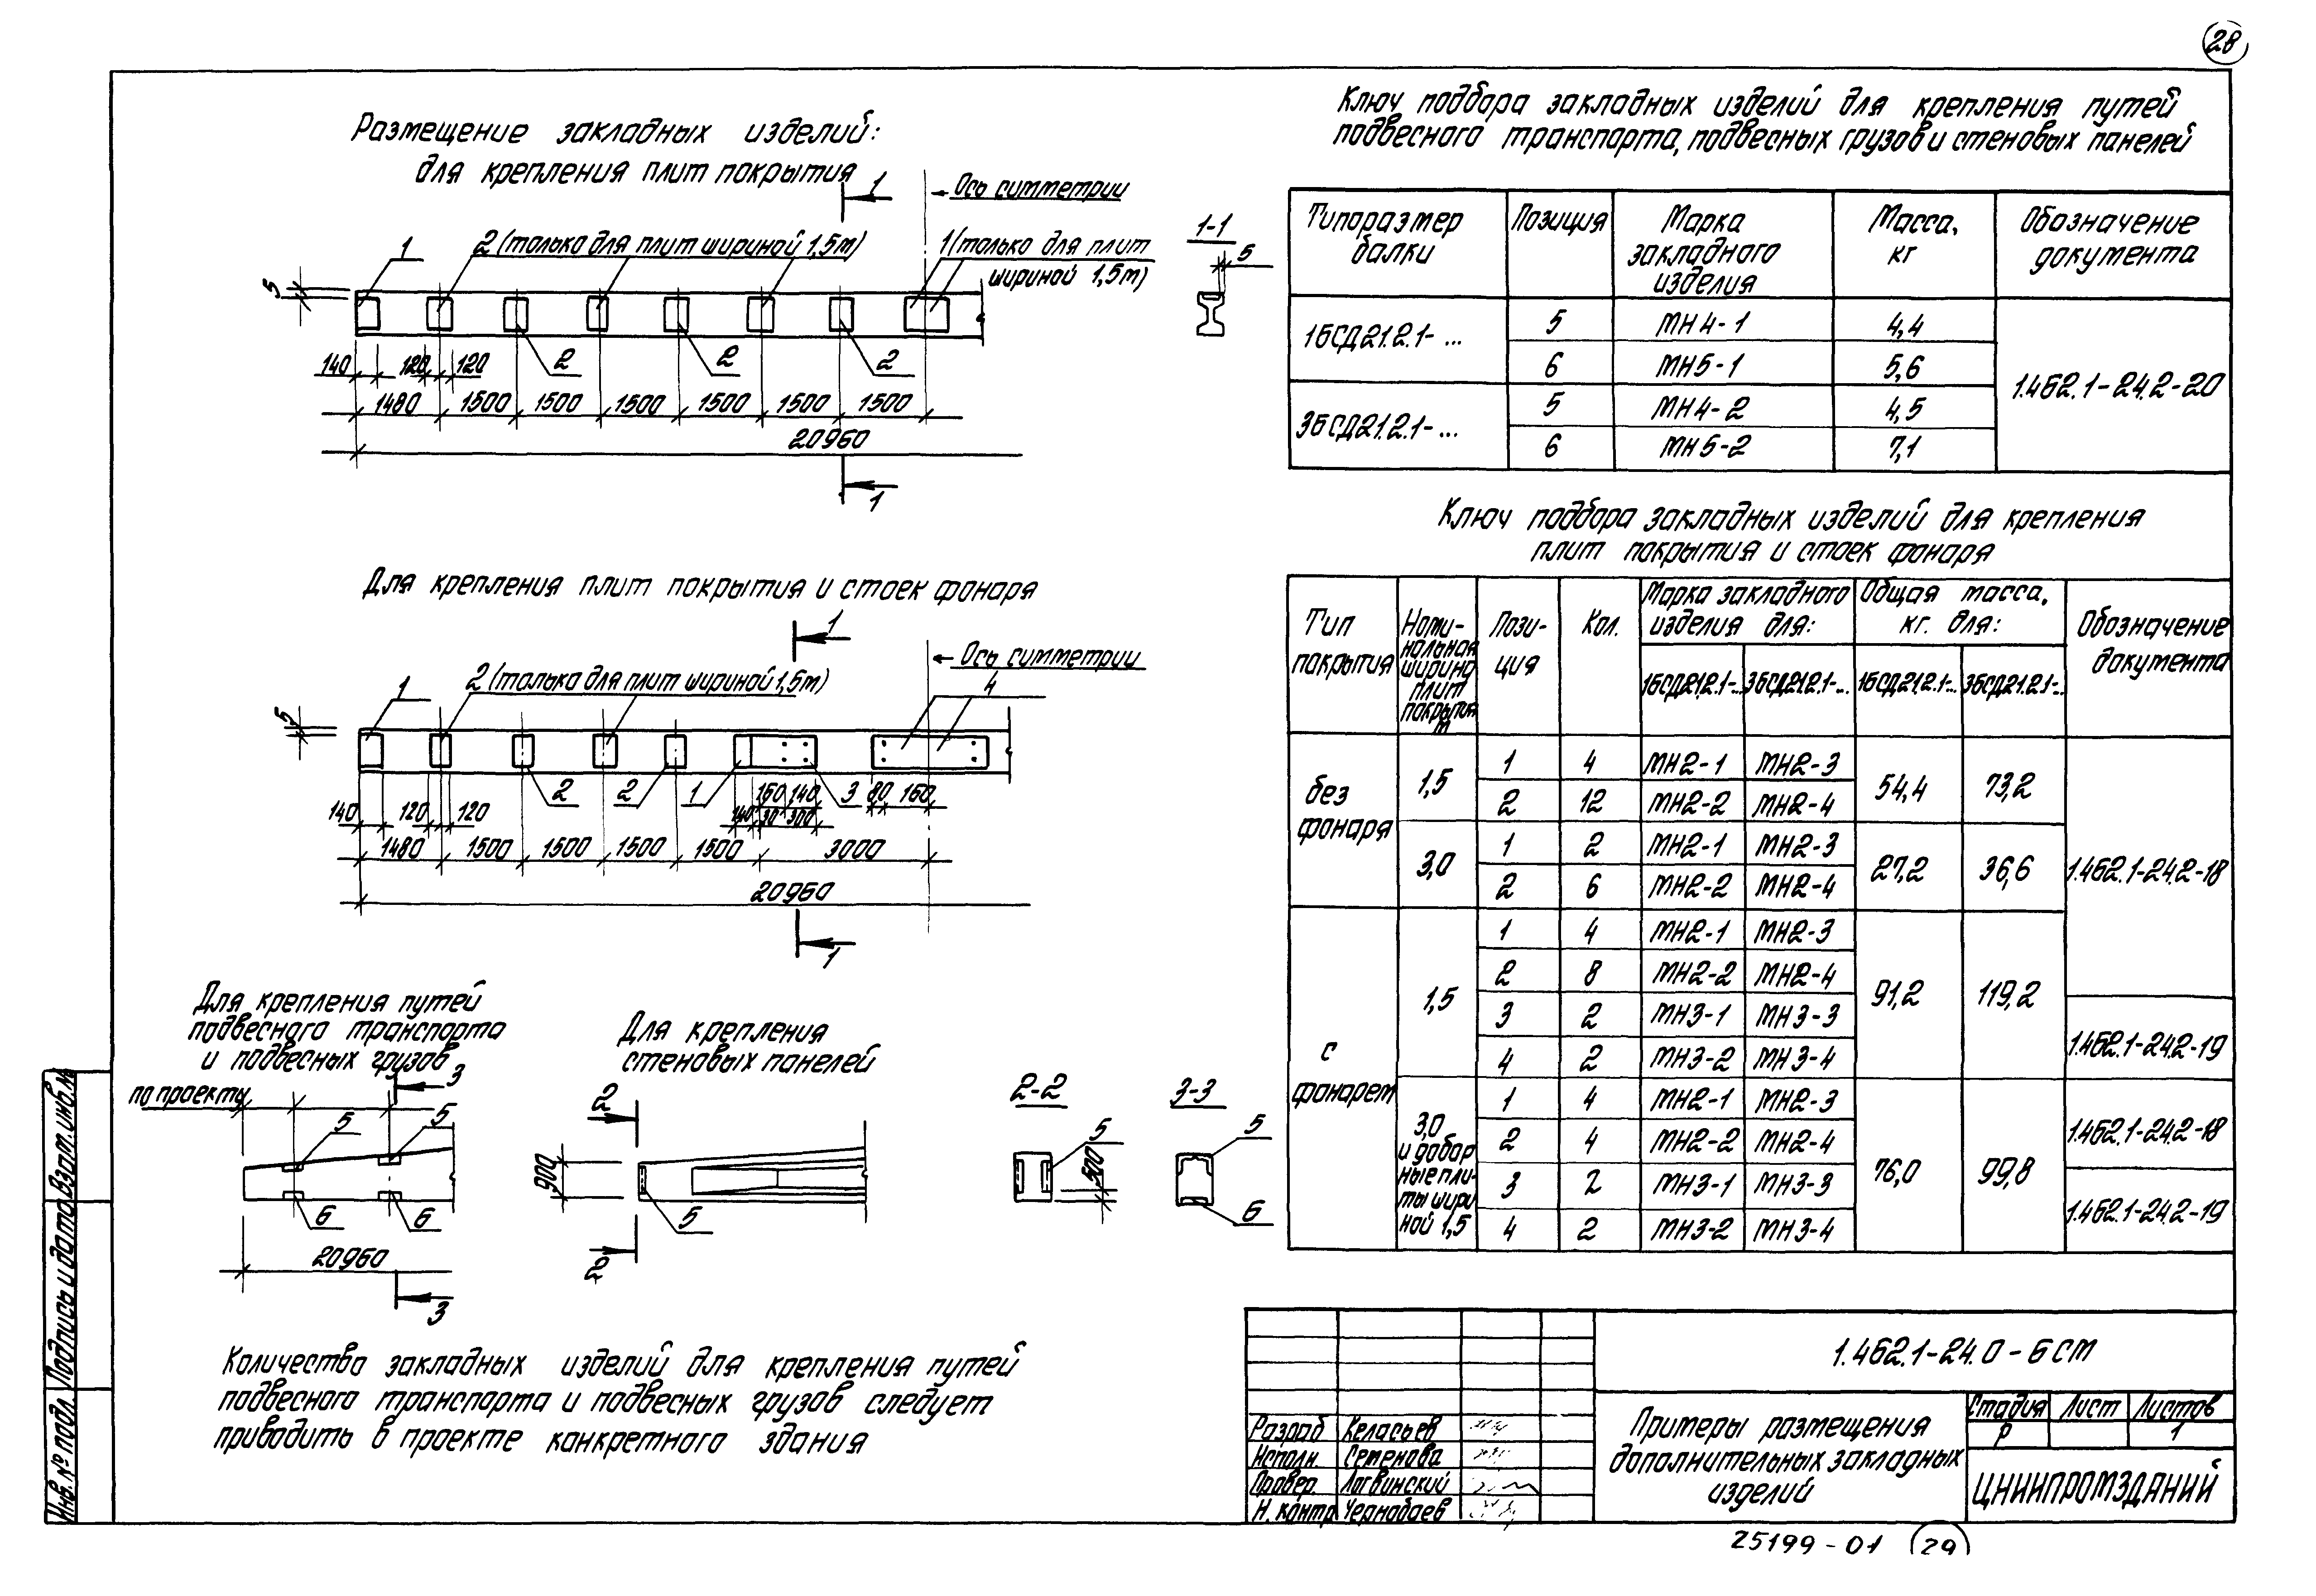 28
Размещение закладных изделий:
для крепления плит покрытия
1
Ось симметрии
1
2 (только для плит шириной 1,5м)
1 (только для плит
шириной 1,5м)
5
2
2
2
140
120
120
1480
1500
1500
1500
1500
1500
1500
20960
1
1-1
5
Для крепления плит покрытия и стоек фонаря
1
Ось симметрии
1
2 (только для плит шириной 1,5м)
4
5
2
2
1
160
140
3
80
160
140
120
120
140
30
300
1480
1500
1500
1500
1500
3000
20960
1
Для крепления путей
подвесного транспорта
и подвесных грузов
по проекту
3
5
5
6
6
20960
3
Для крепления
стеновых панелей
2
900
5
2
2-2
5
500
3-3
5
6
Количество закладных изделий для крепления путей
подвесного транспорта и подвесных грузов следует
приводить в проекте конкретного здания
Ключ подбора закладных изделий для крепления путей
подвесного транспорта, подвесных грузов и стеновых панелей
Типоразмер балки	Позиция	Марка закладного изделия	Масса, кг	Обозначение документа
1БСД21.2.1-...	5	МН4-1	4,4	1.462.1-24.2-20
6	МН5-1	5,6
3БСД21.2.1-...	5	МН4-2	4,5
6	МН5-2	7,1
Ключ подбора закладных изделий для крепления
плит покрытия и стоек фонаря
Тип покрытия	Номинальная ширина плит покрытия м	Позиция	Кол.	Марка закладного изделия для:	Общая масса, кг. для:	Обозначение документа
1БСД21.2.1-...	3БСД21.2.1-...	1БСД21.2.1-...	3БСД21.2.1-...
без фонаря	1,5	1	4	МН2-1	МН2-3	54,4	73,2	1.462.1-24.2-18
2	12	МН2-2	МН2-4
3,0	1	2	МН2-1	МН2-3	27,2	36,6
2	6	МН2-2	МН2-4
с фонарем	1,5	1	4	МН2-1	МН2-3	91,2	119,2
2	8	МН2-2	МН2-4
3	2	МН3-1	МН3-3	1.462.1-24.2-19
4	2	МН3-2	МН3-4
3,0 и доборные плиты шириной 1,5	1	4	МН2-1	МН2-3	76,0	99,8	1.462.1-24.2-18
2	4	МН2-2	МН2-4
3	2	МН3-1	МН3-3	1.462.1-24.2-19
4	2	МН3-2	МН3-4
1.462.1-24.0-6СМ
Разраб	Келасьев
Исполн.	Семенова
Провер.	Логвинский
Н. контр	Чернобаев
Примеры размещения
дополнительных закладных
изделий
Стадия	Лист	Листов
Р	1
ЦНИИПРОМЗДАНИЙ
25199-01	29
Инв. № подл.	Подпись и дата	Взам. инв. №